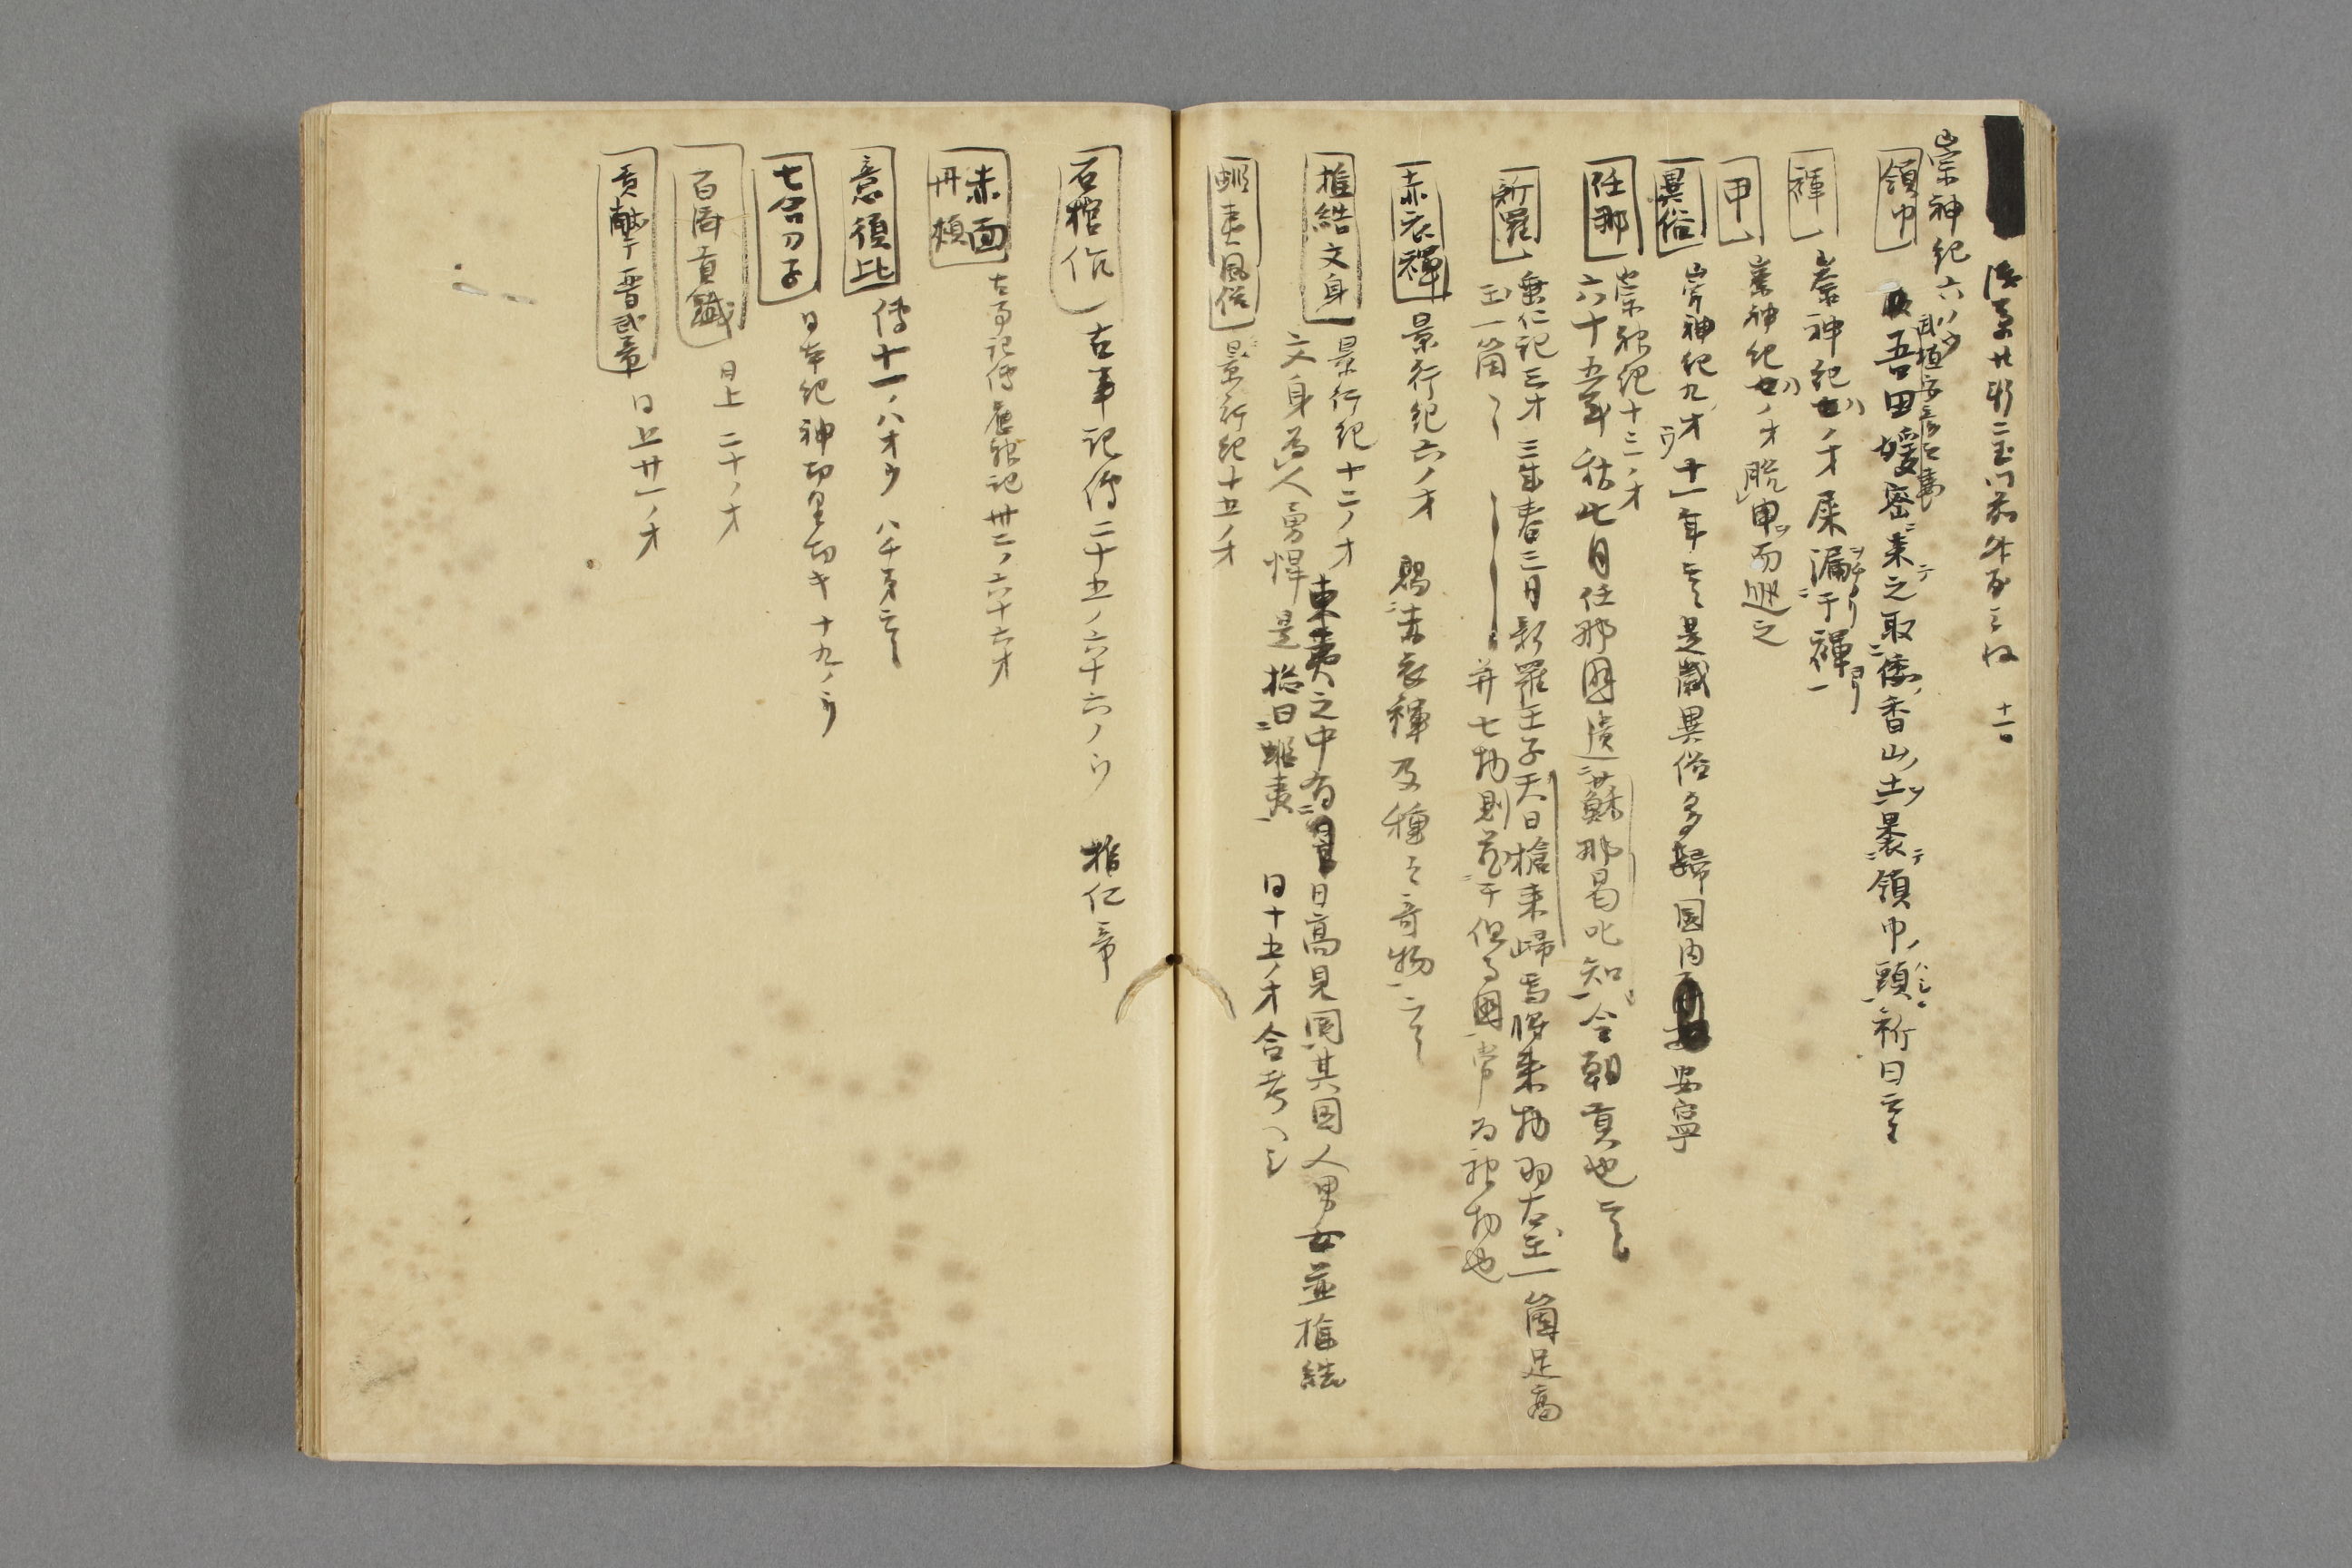 崇神紀六ノウ
領巾 吾田媛密ニ来之取ニ倭ノ香山ノ土ヲ裹テニ領巾ノ頭ハシニ一祈曰云々
褌 崇神紀七八ノオ 屎漏ニ于褌一
甲 崇神紀七八ノオ 脱甲ヲ而逃之
異俗 崇神紀九ノオウ 十一年云々是歳異俗多歸国内安寧
任那 崇神紀十三ノオ
六十五年秋七月任那國遣ニ蘇那曷叱知一令朝貢也云々
新羅 垂仁記三オ 三年春三月新羅王子天日槍来歸焉將来物羽太玉一箇足高
玉一箇 并七物則蔵ニ于但馬國一常為神物也
赤衣褌 景行紀六ノオ 賜ニ赤衣褌及種々奇物一云々
椎結文身 景行紀十二ノオ 東夷之中有ニ日高見國其国人男女並椎結
文身為人勇悍是惣曰ニ蝦夷一 同十五ノオ合考
蝦夷風俗 景行紀十五ノオ
石棺作 古事記傳二十五ノ六十六ノウ
赤面
丹頬 古事記傳 卅二ノ六十六オ
意須比 傳十一ノ八オウ 八千矛云々
七合刀子 日本紀神功 十九ノウ
百済貢鐵 同上二十ノオ
貢献于晋武帝 同上廿一ノオ